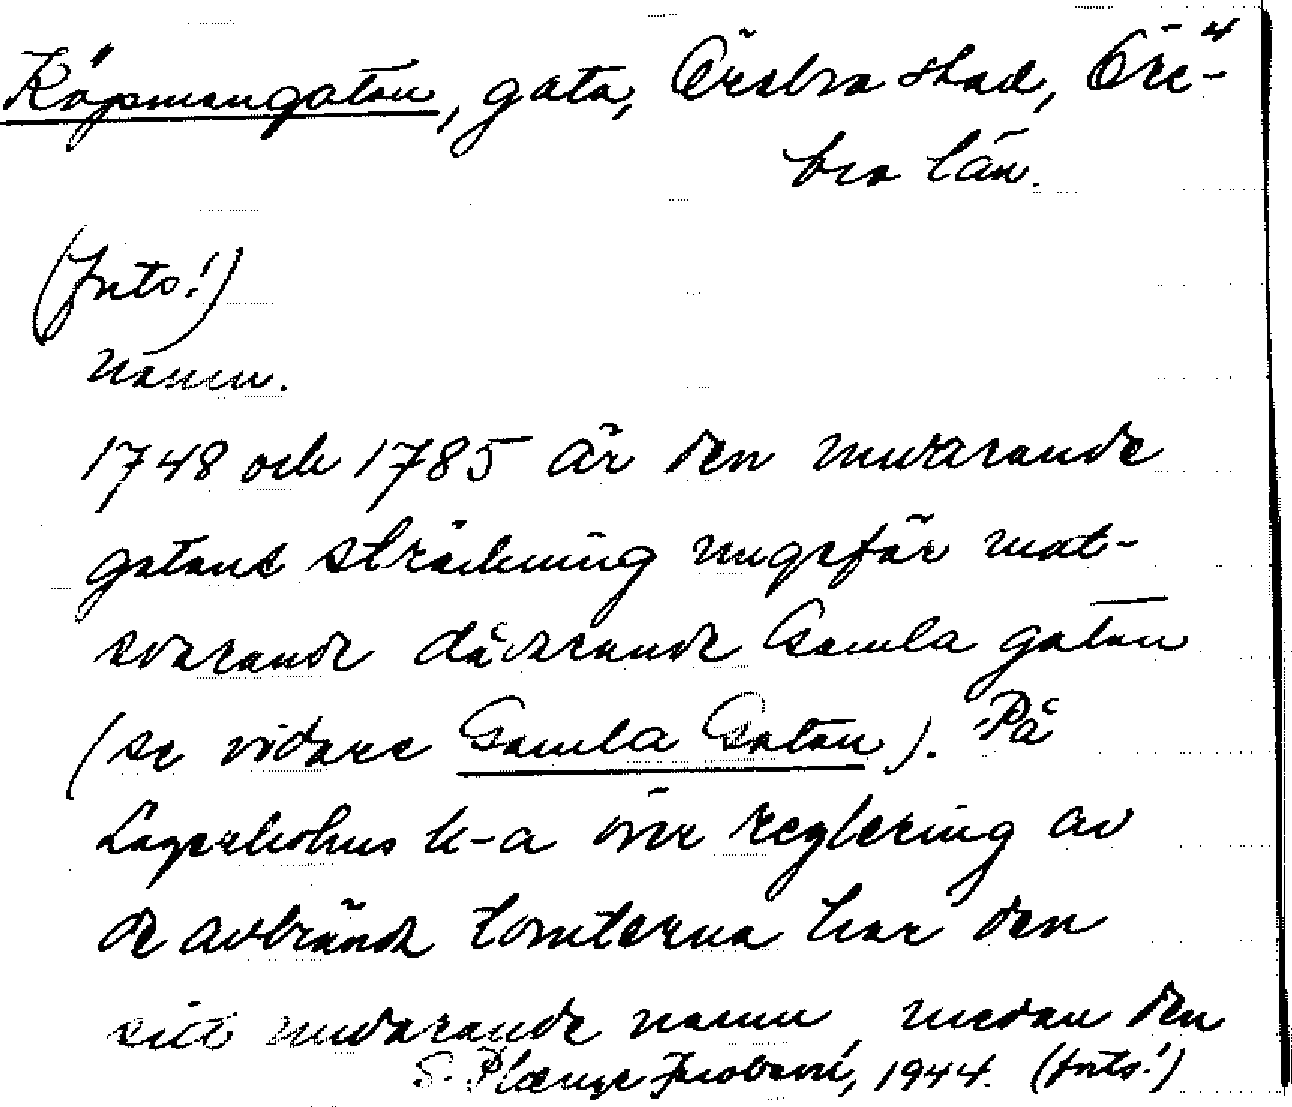 Köpmangatan, gata, Örebro stad, Öre-
bro län.
(forts!)
namn.
1748 och 1785 är den nuvarande
gatans sträckning ungefär mot-
svarande dåvarande Gamla gatan
(se vidare Gamla Gatan). På
Lagerholms k-a över reglering av
de avbrända tomterna har den
sitt nuvarande namn, medan den
S. 1944. (forts!)